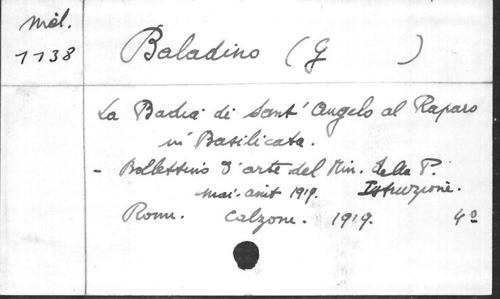 Mél.
1138
Baladino (G )
La Badia di Sant' Angelo al Raparo
in Basilicata.
- Bollettino d'arte del Min. della P.
Istruzione.
mai-août 1919.
Rome. Calzone. 1919. 4º